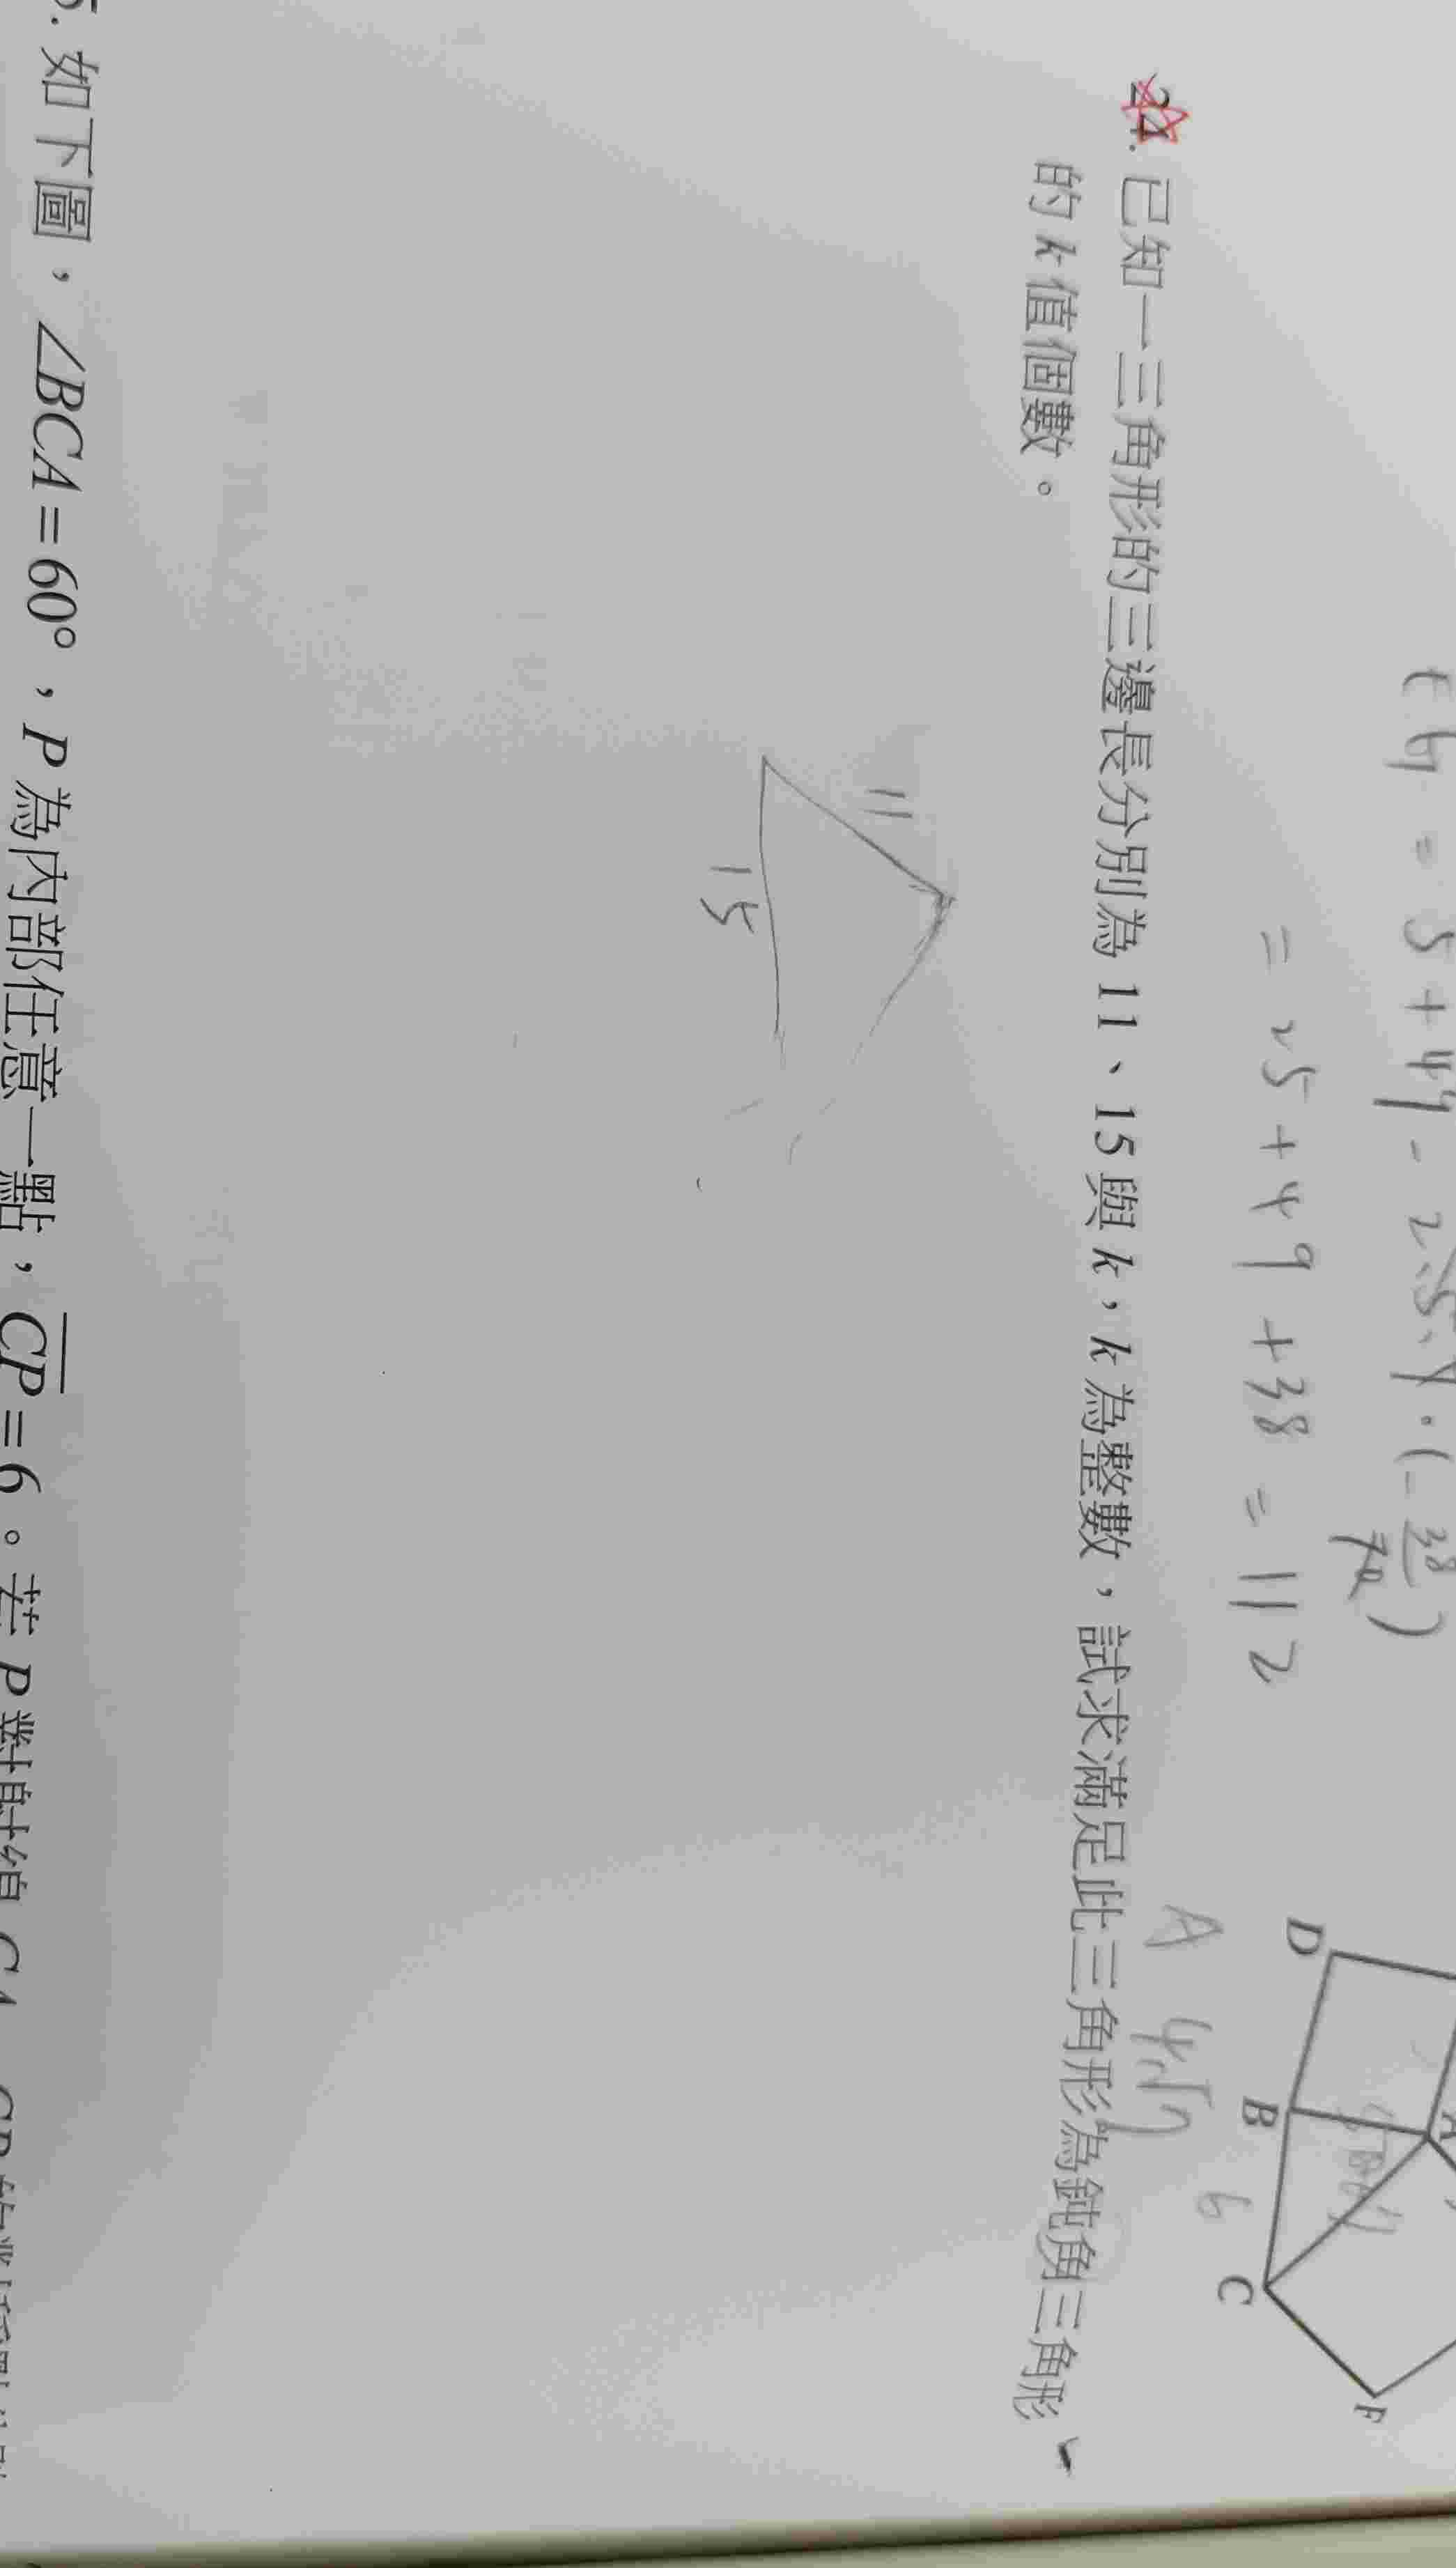 = 5 + 49 - 2·5·
= 25 + 49 + 38 = 112
D
B
C
F
A
4√7
6
24. 已知一三角形的三邊長分別為 11、15 與 k，k 為整數，試求滿足此三角形為鈍角三角形
的 k 值個數。
11
15
5. 如下圖，∠BCA=60°，P 為內部任意一點，CP=6。若 P 對射線 CA